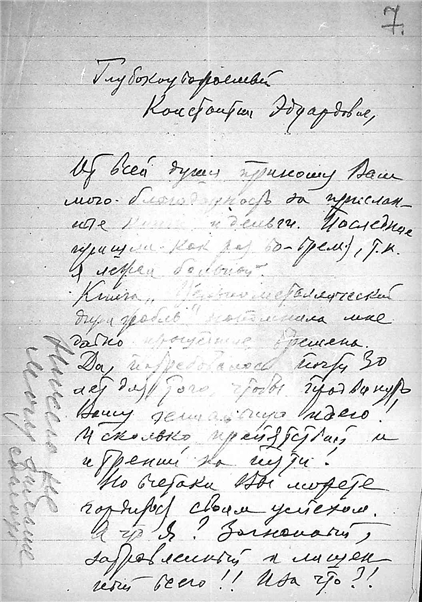 7.
Глубокоуважаемый
Константин Эдуардович,
От всей души приношу Вам
мою благодарность за прислан-
ные книги и деньги. Последние
пришли как раз во-время, т.к.
я лежал больной.
Книга „Цельнометаллический
дирижабль" напомнила мне
давно прошедшие времена.
Да, потребовалось почти 30
лет для того чтобы продвинуть
Вашу гениальную идею!
И сколько препятствий и
трений на пути!
Но всетаки Вы можете
гордиться своим успехом.
А что я? Загнанный,
затравленный и лишен-
ный всего!! И за что?!!
Никого не